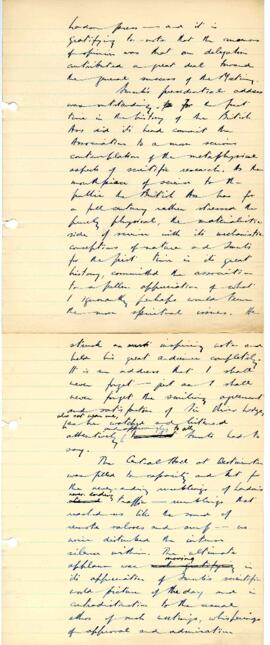 London press — and it is
gratifying to note that the consensus
of opinion was that our delegation
contributed a great deal towards
the general success of the Meeting.
Smuts's presidential address
was outstanding. For the first
time in the history of the British
Ass did its head commit the
Association to a more serious
contemplation of the metaphysical
aspects of scientific research. As the
mouthpiece of science to the
public the British Ass has for
a full century rather stressed the
purely physical, the materialistic
side of science with its mechanistic
conceptions of nature and Smuts
for the first time in its great
history, committed the association
to a fuller appreciation of what
I ignorantly perhaps would term
the more spiritual issues. He
struck an inspiring note and
held his great audience completely.
It is an address that I shall
never forget — just as I shall
never forget the smiling agreement
and satisfaction of Sir Oliver Lodge,
as he watched and listened
attentively to all Smuts had to
say.
The Central Hall at Westminster
was filled to capacity and but for
the never-ending rumblings of London's
traffic — rumblings that
reached us like the sound of
remote and surf — no
noise disturbed the intense
silence within. The ultimate
applause was moving in
its appreciation of Smuts's scientific
world picture of the day and in
contradistinction to the usual
ethos of such meetings, whisperings
of approval and admiration